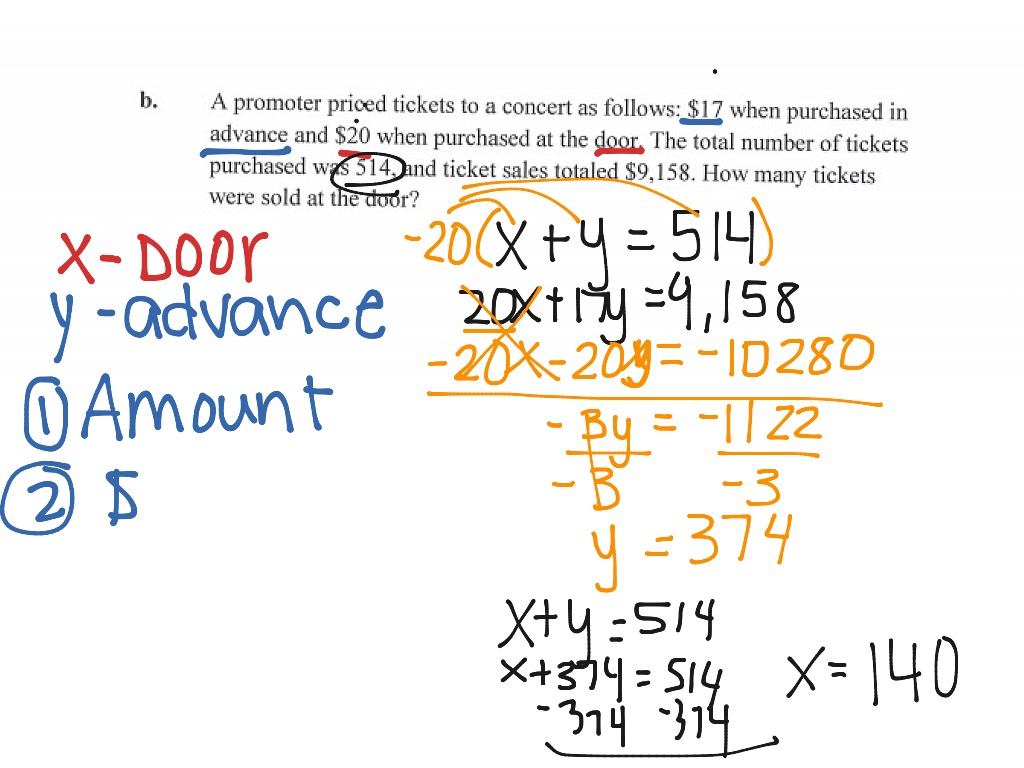 b. A promoter priced tickets to a concert as follows: $17 when purchased in
advance and $20 when purchased at the door. The total number of tickets
purchased was 514, and ticket sales totaled $9,158. How many tickets
were sold at the door?
x - Door
y - advance
① Amount
② $
-20(x + y = 514)
20x + 17y = 9,158
-20x - 20y = -10280
-3y = -1122
-3 -3
y = 374
x + y = 514
x + 374 = 514
-374 -374
x = 140